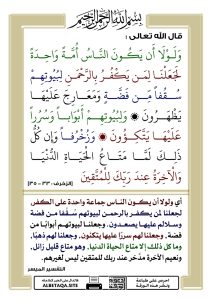 بسم الله الرحمن الرحيم
قال الله تعالى :
وَلَوْلَا أَن يَكُونَ النَّاسُ أُمَّةً وَاحِدَةً
لَّجَعَلْنَا لِمَن يَكْفُرُ بِالرَّحْمَٰنِ لِبُيُوتِهِمْ
سُقُفًا مِّن فِضَّةٍ وَمَعَارِجَ عَلَيْهَا
يَظْهَرُونَ ۝ وَلِبُيُوتِهِمْ أَبْوَابًا وَسُرُرًا
عَلَيْهَا يَتَّكِئُونَ ۝ وَزُخْرُفًا وَإِن كُلُّ
ذَٰلِكَ لَمَّا مَتَاعُ الْحَيَاةِ الدُّنْيَا
وَالْآخِرَةُ عِندَ رَبِّكَ لِلْمُتَّقِينَ
[الزخرف: ٣٣ - ٣٥]
أي ولولا أن يكون الناس جماعة واحدة على الكفر،
لجعلنا لمن يكفر بالرحمن لبيوتهم سُقُفا من فضة
وسلالم عليها يصعدون، وجعلنا لبيوتهم أبوابا من
فضة، وجعلنا لهم سررًا عليها يتكئون، وجعلنا لهم ذهبًا،
وما كل ذلك إلا متاع الحياة الدنيا، وهو متاع قليل زائل،
ونعيم الآخرة مدَّخر عند ربك للمتقين ليس لغيرهم.
التفسير الميسر
ALBETAQA.SITE